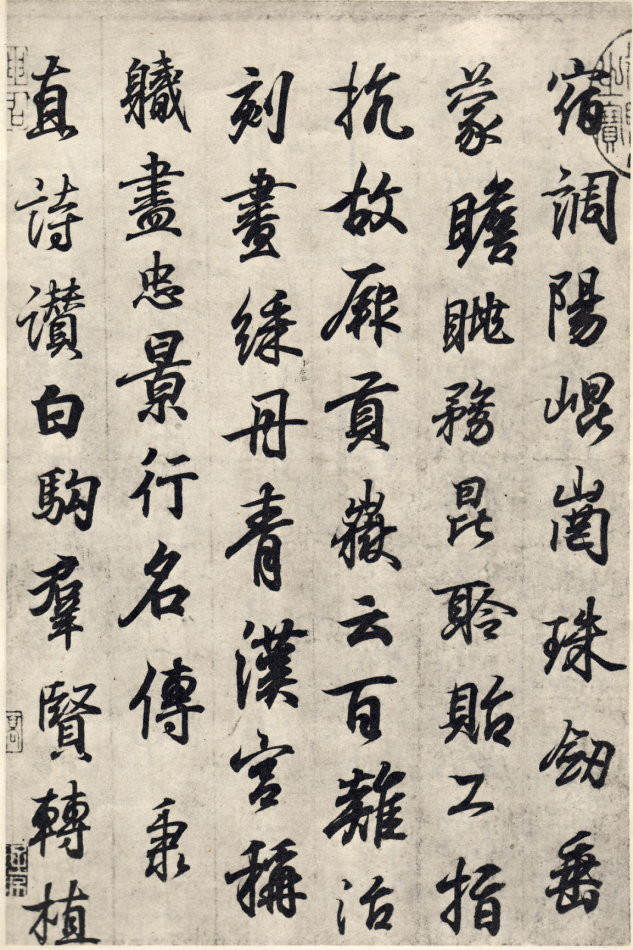 宿調陽崐崗珠劒垂
蒙瞻眺務昆聆貽工指
抗故厥貢嶽云百難治
刻畫綵丹青漢宮稱
軄盡忠景行名傳秉
直詩讃白駒羣賢轉植